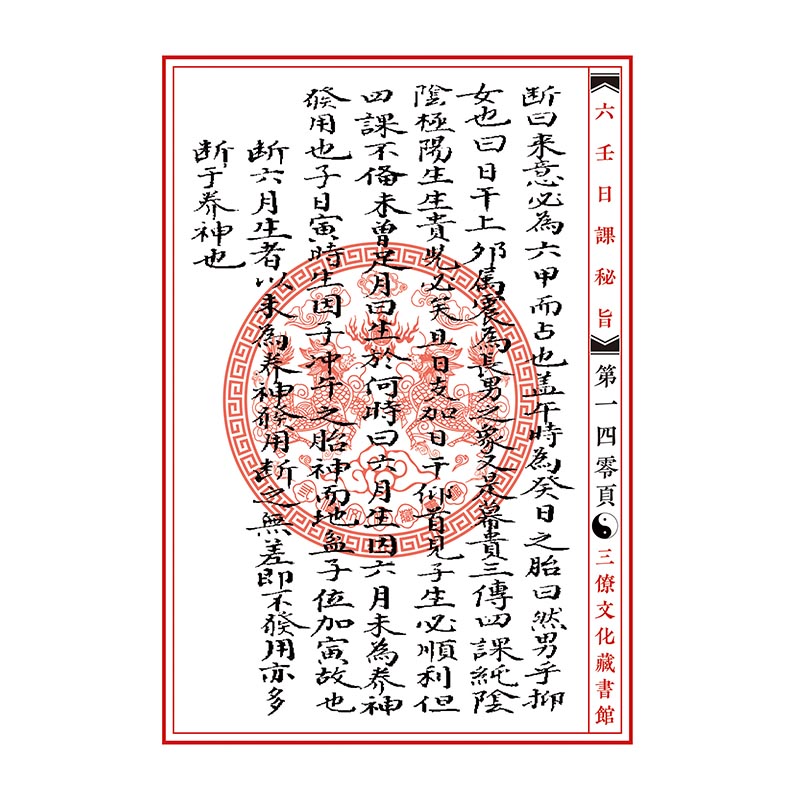 六壬日課秘旨
第一四零頁
三僚文化藏書館
断曰来意必為六甲而占也盖午時為癸日之胎曰然男乎抑
女也曰日干上卯属震為長男之象又是幕貴三傳四課純陰
陰極陽生生貴児必矣且日支加日干仰首見子生必順利但
四課不偹未曾足月曰生於何時曰六月生因六月未為养神
發用也子日寅時生因子冲午之胎神而地盆子位加寅故也
断六月生者以未為养神發用断之無差即不發用亦多
断于养神也